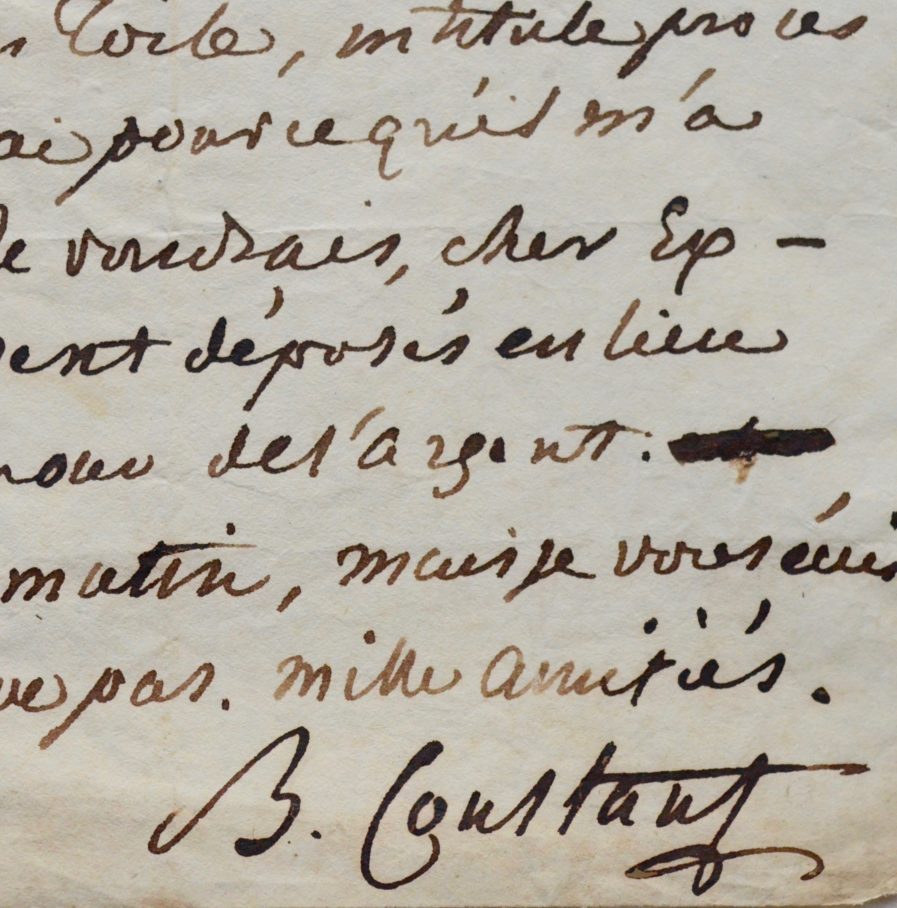 Toile, intitulé procès
ai pour ce qu'il m'a
Je voudrais, cher Ex-
sent déposés en lieu
pour de l'argent.
matin, mais je vous écris
pas. mille amitiés.
B. Constant